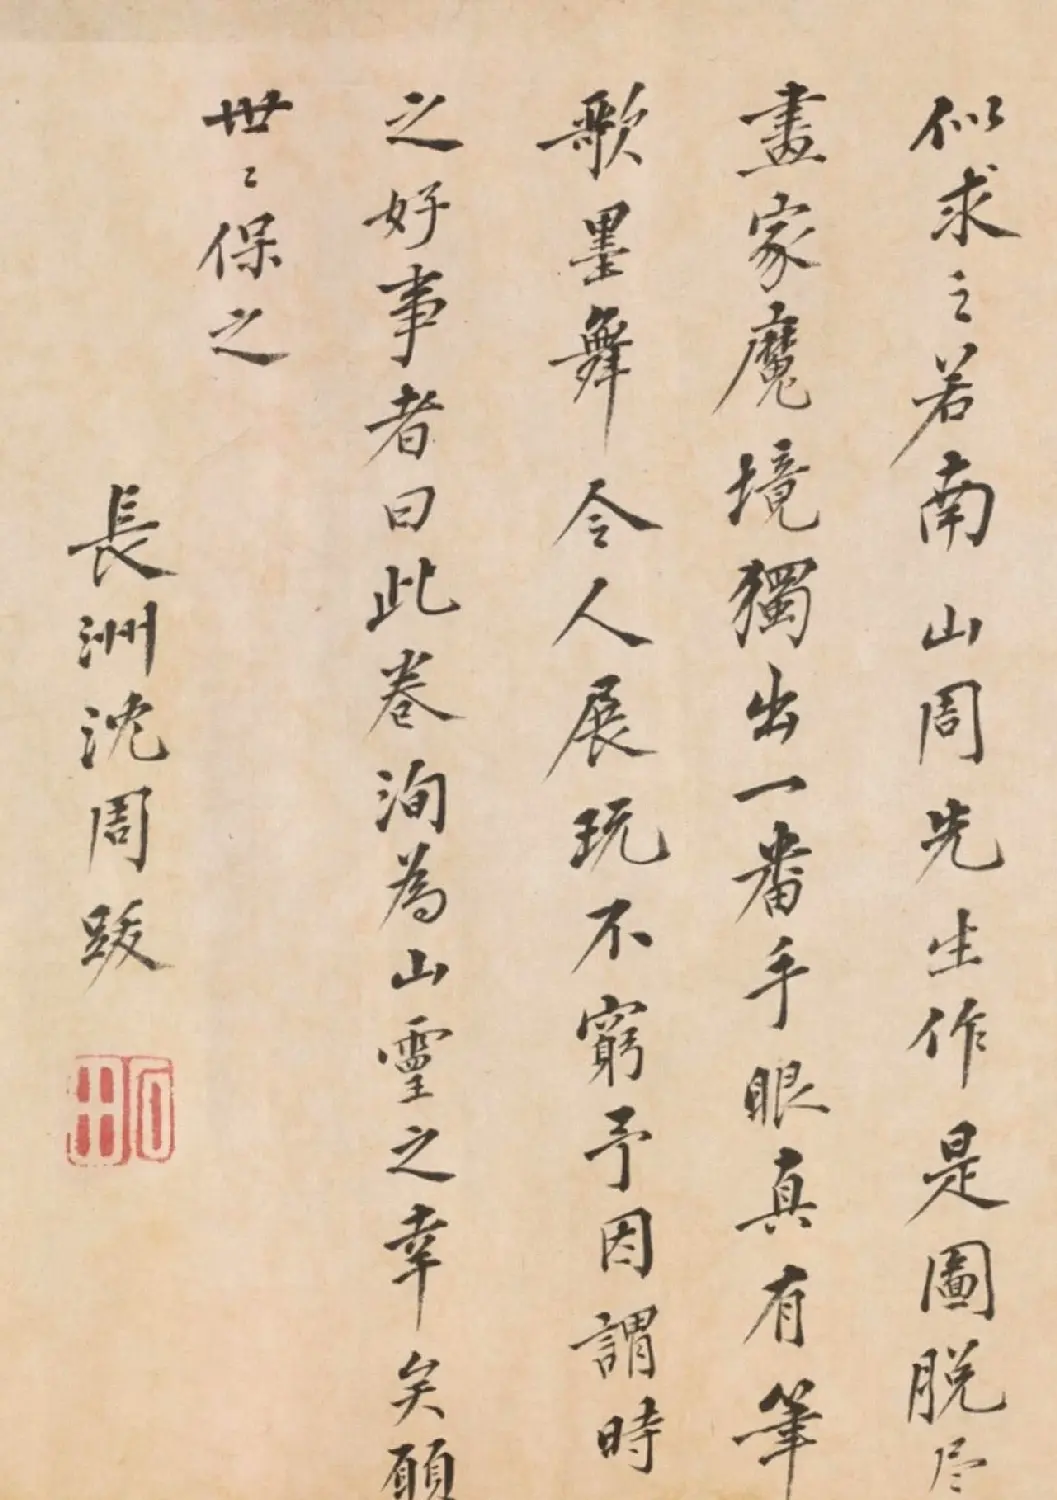 似求之若南山周先生作是圖脱尽
畫家魔境獨出一番手眼真有筆
歌墨舞令人展玩不窮予因謂時
之好事者曰此卷洵為山靈之幸矣願
世〻保之
長洲沈周跋
石田